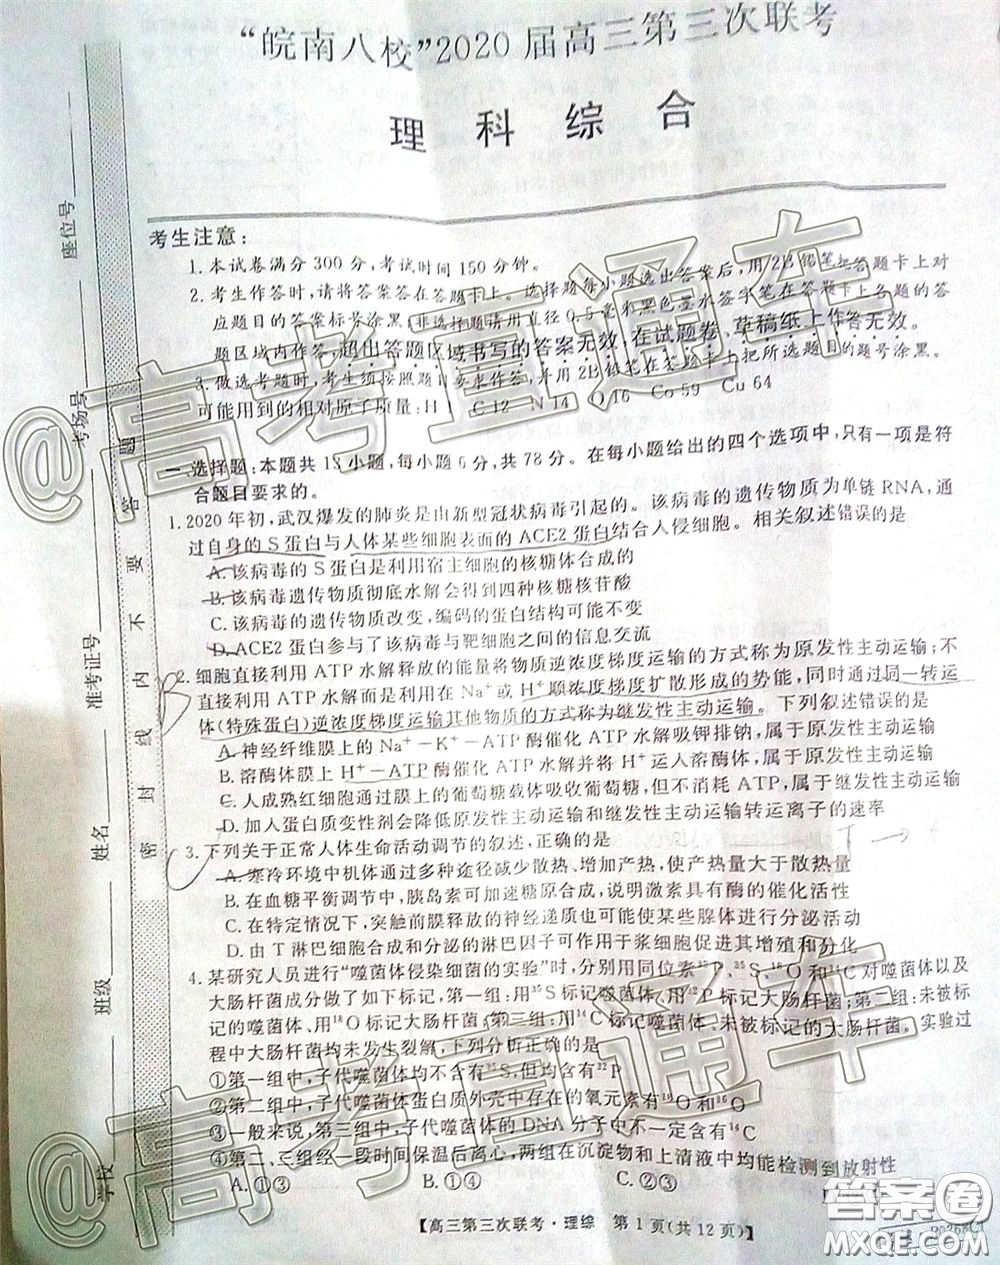 “皖南八校”2020届高三第三次联考
理科综合
考生注意：
1.本试卷满分300分，考试时间150分钟。
2.考生作答时，请将答案答在答题卡上。选择题每小题选出答案后，用2B铅笔把答题卡上对
应题目的答案标号涂黑；非选择题请用直径0.5毫米黑色墨水签字笔在答题卡上各题的答
题区域内作答，超出答题区域书写的答案无效，在试题卷、草稿纸上作答无效。
3.做选考题时，考生须按照题目要求作答，并用2B铅笔在答题卡上把所选题目的题号涂黑。
可能用到的相对原子质量：H 1 C 12 N 14 O 16 Co 59 Cu 64
一、选择题：本题共13小题，每小题6分，共78分。在每小题给出的四个选项中，只有一项是符
合题目要求的。
1.2020年初，武汉爆发的肺炎是由新型冠状病毒引起的。该病毒的遗传物质为单链RNA，通
过自身的S蛋白与人体某些细胞表面的ACE2蛋白结合入侵细胞。相关叙述错误的是
A.该病毒的S蛋白是利用宿主细胞的核糖体合成的
B.该病毒的遗传物质彻底水解会得到四种核糖核苷酸
C.该病毒的遗传物质改变，编码的蛋白结构可能不变
D.ACE2蛋白参与了该病毒与靶细胞之间的信息交流
2.细胞直接利用ATP水解释放的能量将物质逆浓度梯度运输的方式称为原发性主动运输；不
直接利用ATP水解而是利用在Na⁺或H⁺顺浓度梯度扩散形成的势能，同时通过同一转运
体(特殊蛋白)逆浓度梯度运输其他物质的方式称为继发性主动运输。下列叙述错误的是
A.神经纤维膜上的Na⁺－K⁺－ATP酶催化ATP水解并吸钾排钠，属于原发性主动运输
B.溶酶体膜上H⁺－ATP酶催化ATP水解并将H⁺运入溶酶体，属于原发性主动运输
C.人成熟红细胞通过膜上的葡萄糖载体吸收葡萄糖，但不消耗ATP，属于继发性主动运输
D.加入蛋白质变性剂会降低原发性主动运输和继发性主动运输转运离子的速率
3.下列关于正常人体生命活动调节的叙述，正确的是
A.寒冷环境中机体通过多种途径减少散热、增加产热，使产热量大于散热量
B.在血糖平衡调节中，胰岛素可加速糖原合成，说明激素具有酶的催化活性
C.在特定情况下，突触前膜释放的神经递质也可能使某些腺体进行分泌活动
D.由T淋巴细胞合成和分泌的淋巴因子不能作用于浆细胞的增殖和分化
4.某研究人员进行“噬菌体侵染细菌的实验”时，分别用同位素³²P、³⁵S、¹⁸O和¹⁴C对噬菌体以及
大肠杆菌成分做了如下标记，第一组：用³⁵S标记噬菌体、用³²P标记大肠杆菌；第二组：未被标
记的噬菌体、用¹⁸O标记大肠杆菌；第三组：用¹⁴C标记噬菌体、未被标记的大肠杆菌。实验过
程中大肠杆菌均未发生裂解，下列分析正确的是
①第一组中，子代噬菌体均不含有³⁵S，但均含有³²P
②第二组中，子代噬菌体蛋白质外壳中存在的氧元素有¹⁸O和¹⁶O
③一般来说，第三组中，子代噬菌体的DNA分子中不一定含有¹⁴C
④第二、三组经一段时间保温后离心，两组在沉淀物和上清液中均能检测到放射性
A.①③ B.①④ C.②③
【高三第三次联考·理综 第1页(共12页)】
座位号
考场号
准考证号
姓名
班级
学校
密封线内不要答题
@高考直通车
@高考直通车
答案圈
MXQE.COM